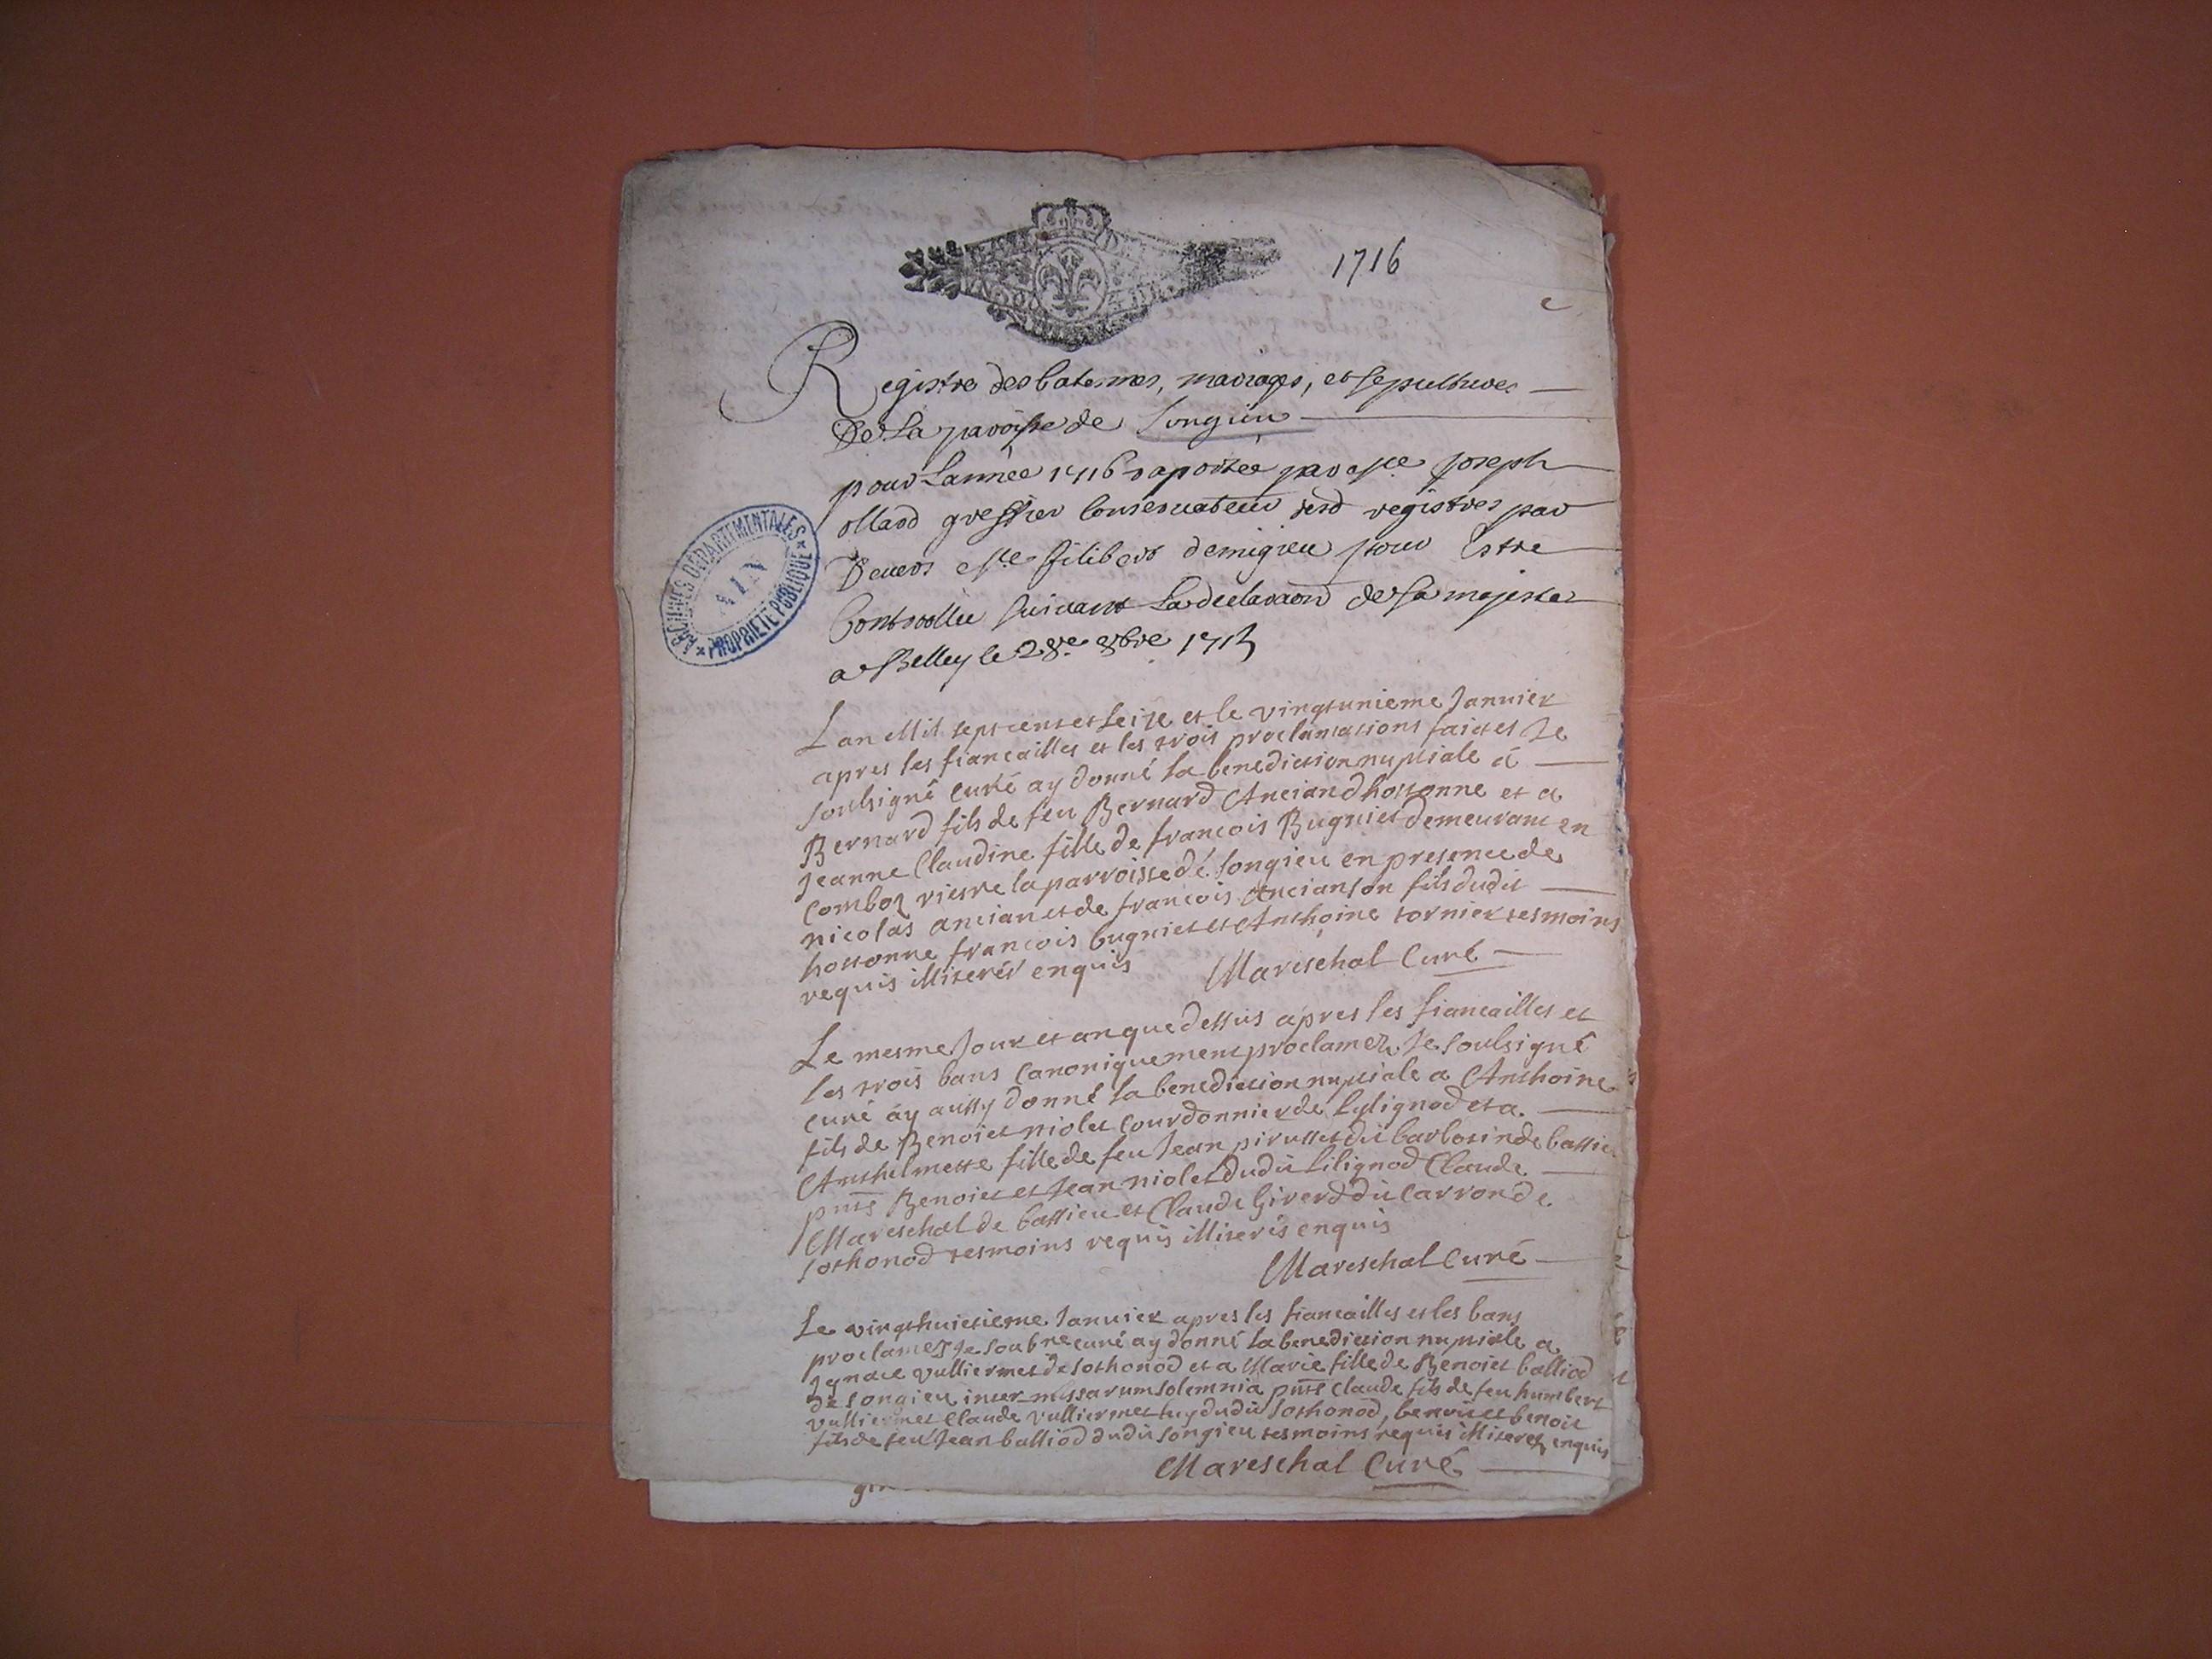 1716
Registre des batesmes, mariages, et sepultures
De La paroisse de Songieu
pour Lannèe 1716 raportèe par Me Joseph
ollard greffier Conseruateur desd registres par
Deuers Me filibert demigieu pour Estre
Controollèe suiuant La declaraõn de sa majesté
a Belley le 28e 8bre 1715
ARCHIVES DÉPARTEMENTALES
AIN
PROPRIÉTÉ PUBLIQUE
Lan Mil sept cent et seize et le vingtunieme Janvier
apres les fiancailles et les trois proclamations faictes Je
soubsigné curé ay donné la benediction nuptiale á
Bernard fils de feu Bernard Ancian dhostonne et a
Jeanne Claudine fille de francois Bugniet demeurant en
Comboz riere la parroisse dé songieu en presence de
nicolas ancian et de francois Ancian son fils dudit
hostonne francois bugniet et Anthoine tornier tesmoins
requis illiterés enquis Mareschal Curé
Le mesme Jour et an que dessus apres les fiancailles et
les trois bans Canoniquement proclamez Je soubsigné
curé ay aussy donné la benediction nuptiale a Anthoine
fils de Benoict niolet Courdonnier de Lylignod et a
Anthelmette fille de feu Jean pirusset dit barbotin de bassieu
pnts Benoict et Jean niolet dudit Lilignod Claude
Mareschal de bassieu et Claude Giverd dit Carron de
sothonod tesmoins requis illiterés enquis
Mareschal Curé
Le vingthuictieme Janvier apres les fiancailles et les bans
proclamez Je soubne curé ay donné la benediction nuptiale a
Jgnace vulliermet de sothonod et a Marie fille de Benoict balliod
de songieu inter missarum solemnia pnts Claude fils de feu humbert
vulliermet Claude vulliermet tuy dudit sothonod, benoict et benoit
fils de feu Jean balliod dudit songieu tesmoins requis illiterez enquis
Mareschal Curé